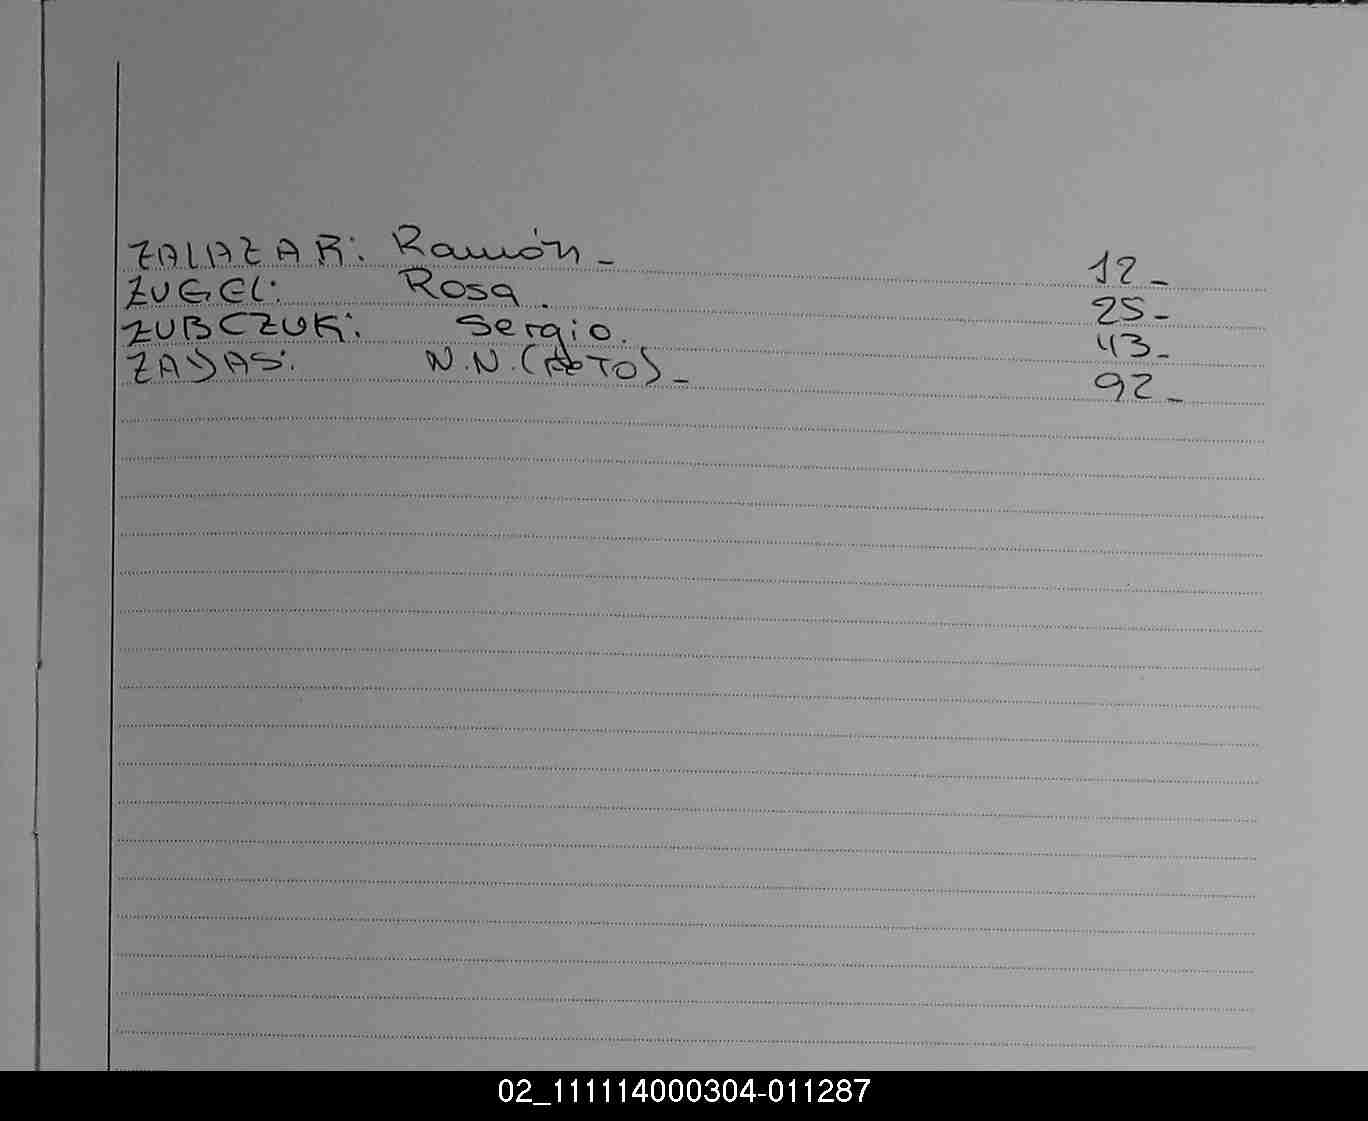 ZALAZAR: Ramón_ 12_
ZUGEL: Rosa. 25_
ZUBCZUK: Sergio. 43_
ZAYAS: N.N.(AbTO)_ 92_
02_111114000304-011287